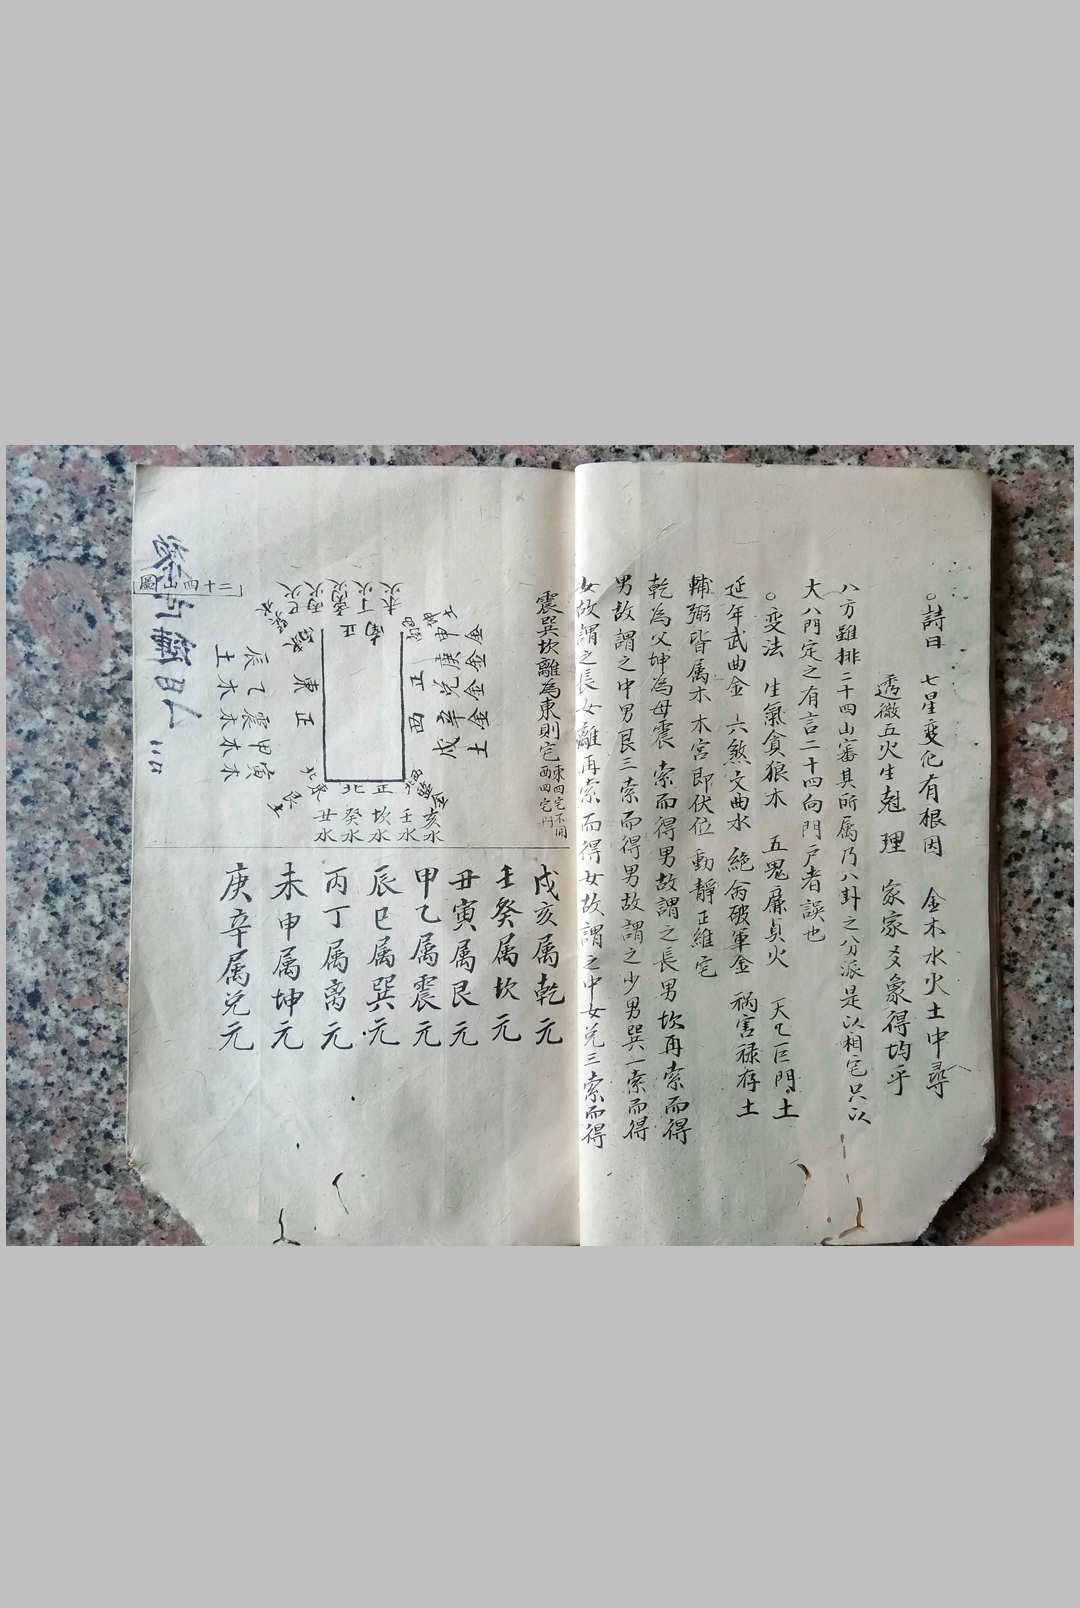 ○詩曰 七星變化有根因 金木水火土中尋
透徹五火生尅理 家家爻象得均平
八方雖排二十四山審其所属乃八卦之分派是以相宅只以
大八門定之有言二十四向門戸者誤也
○变法 生氣貪狼木 五鬼廉貞火 天乙巨門土
延年武曲金 六煞文曲水 絶命破軍金 禍害禄存土
輔弼皆属木 木宮即伏位 動静正維宅
乾為父坤為母震一索而得男故謂之長男坎再索而得
男故謂之中男艮三索而得男故謂之少男巽一索而得
女故謂之長女離再索而得女故謂之中女兑三索而得
震巽坎離為東則宅
東四宅不開
西四宅門
戌亥属乾元
壬癸属坎元
丑寅属艮元
甲乙属震元
辰巳属巽元
丙丁属离元
未申属坤元
庚辛属兑元
二十四山圖
正南
正東
正西
正北
申庚兑辛戌
金金金金土
亥壬坎癸丑
水水水水
寅甲震乙辰
木木木木土